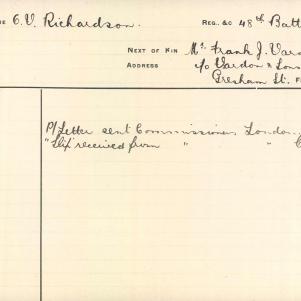 C. V. Richardson. REG. &C 48th Batt
NEXT OF KIN Mr. Frank J. Vard
ADDRESS c/o Vardon & Sons
Gresham St.
P/Letter sent Commissioner, London.
"Slip" received from " "